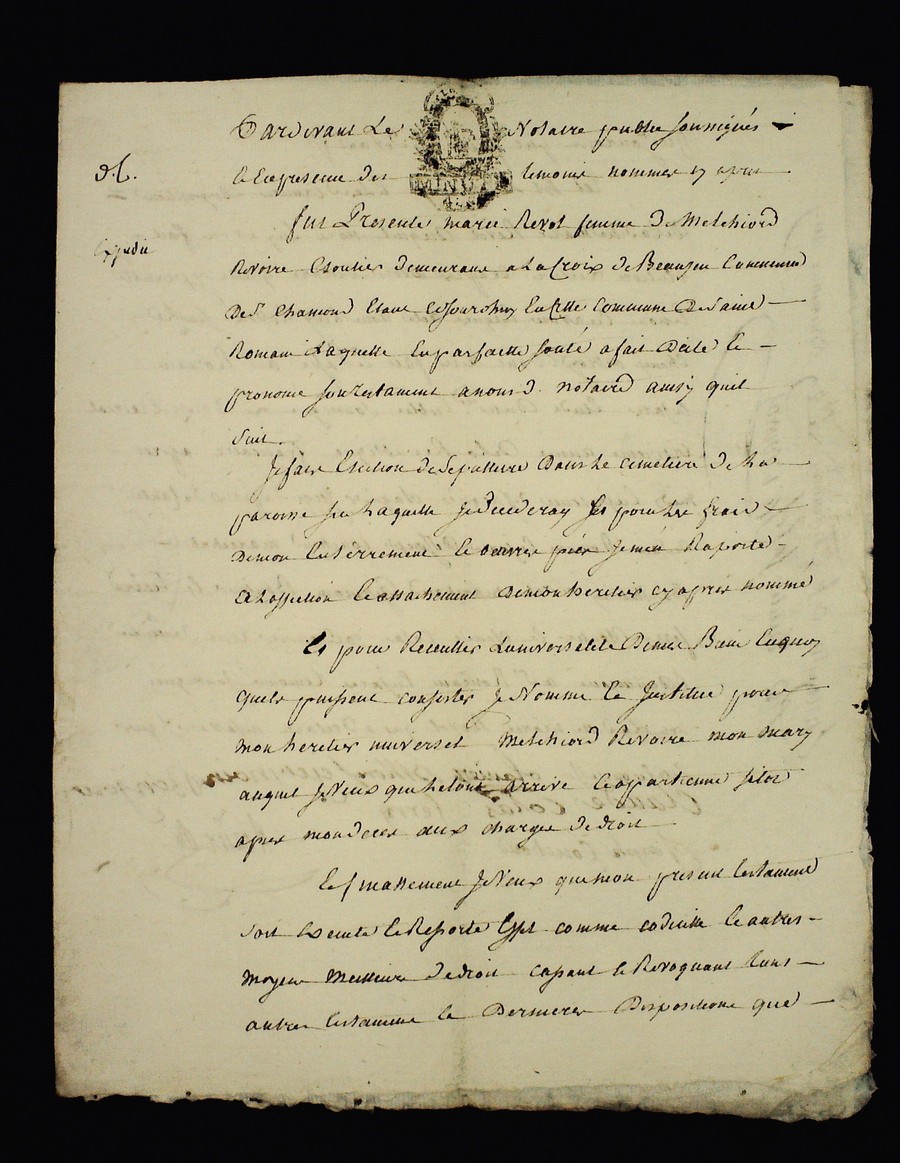 Pardevant Le Notaire public soussignés
MINUTE
& En presence des temoins nommes cy apres
Expedie
fut Presente marie Revol femme de Melchiord
Revoire Cloutier demeurant a La Croix de Beaujeu Commune
De St Chamond Etant Ce jourdhuy En Cette Commune De Saint
Romain Laquelle En parfaitte santé a fait Dicté &
prononcé son testament a nous d. notaire ainsy quil
suit.
Je fais Election de Sepulture Dans Le Cemetiere de La
paroisse sur Laquelle Je Decederay Et pour Les frais
De mon Enterrement & oeuvres pies Je m'en Raporte
a Laffection & attachement De mon heretier cy apres nommé
Et pour Receuillir Luniversalité De mes Biens En quoy
quils puissent consister Je Nomme & Institue pour
mon heretier universel Melchiord Revoire mon mary
auquel Je Veux que le tout arrive & apartienne sitot
apres mon deces aux charges de droit
Et finallement Je Veux que mon present testament
soit Execute & Ressorte Effet comme codicille & autres
moyens Meilleurs de droit cassant & Revoquant tous
autres testaments & Dernieres Dispositions que